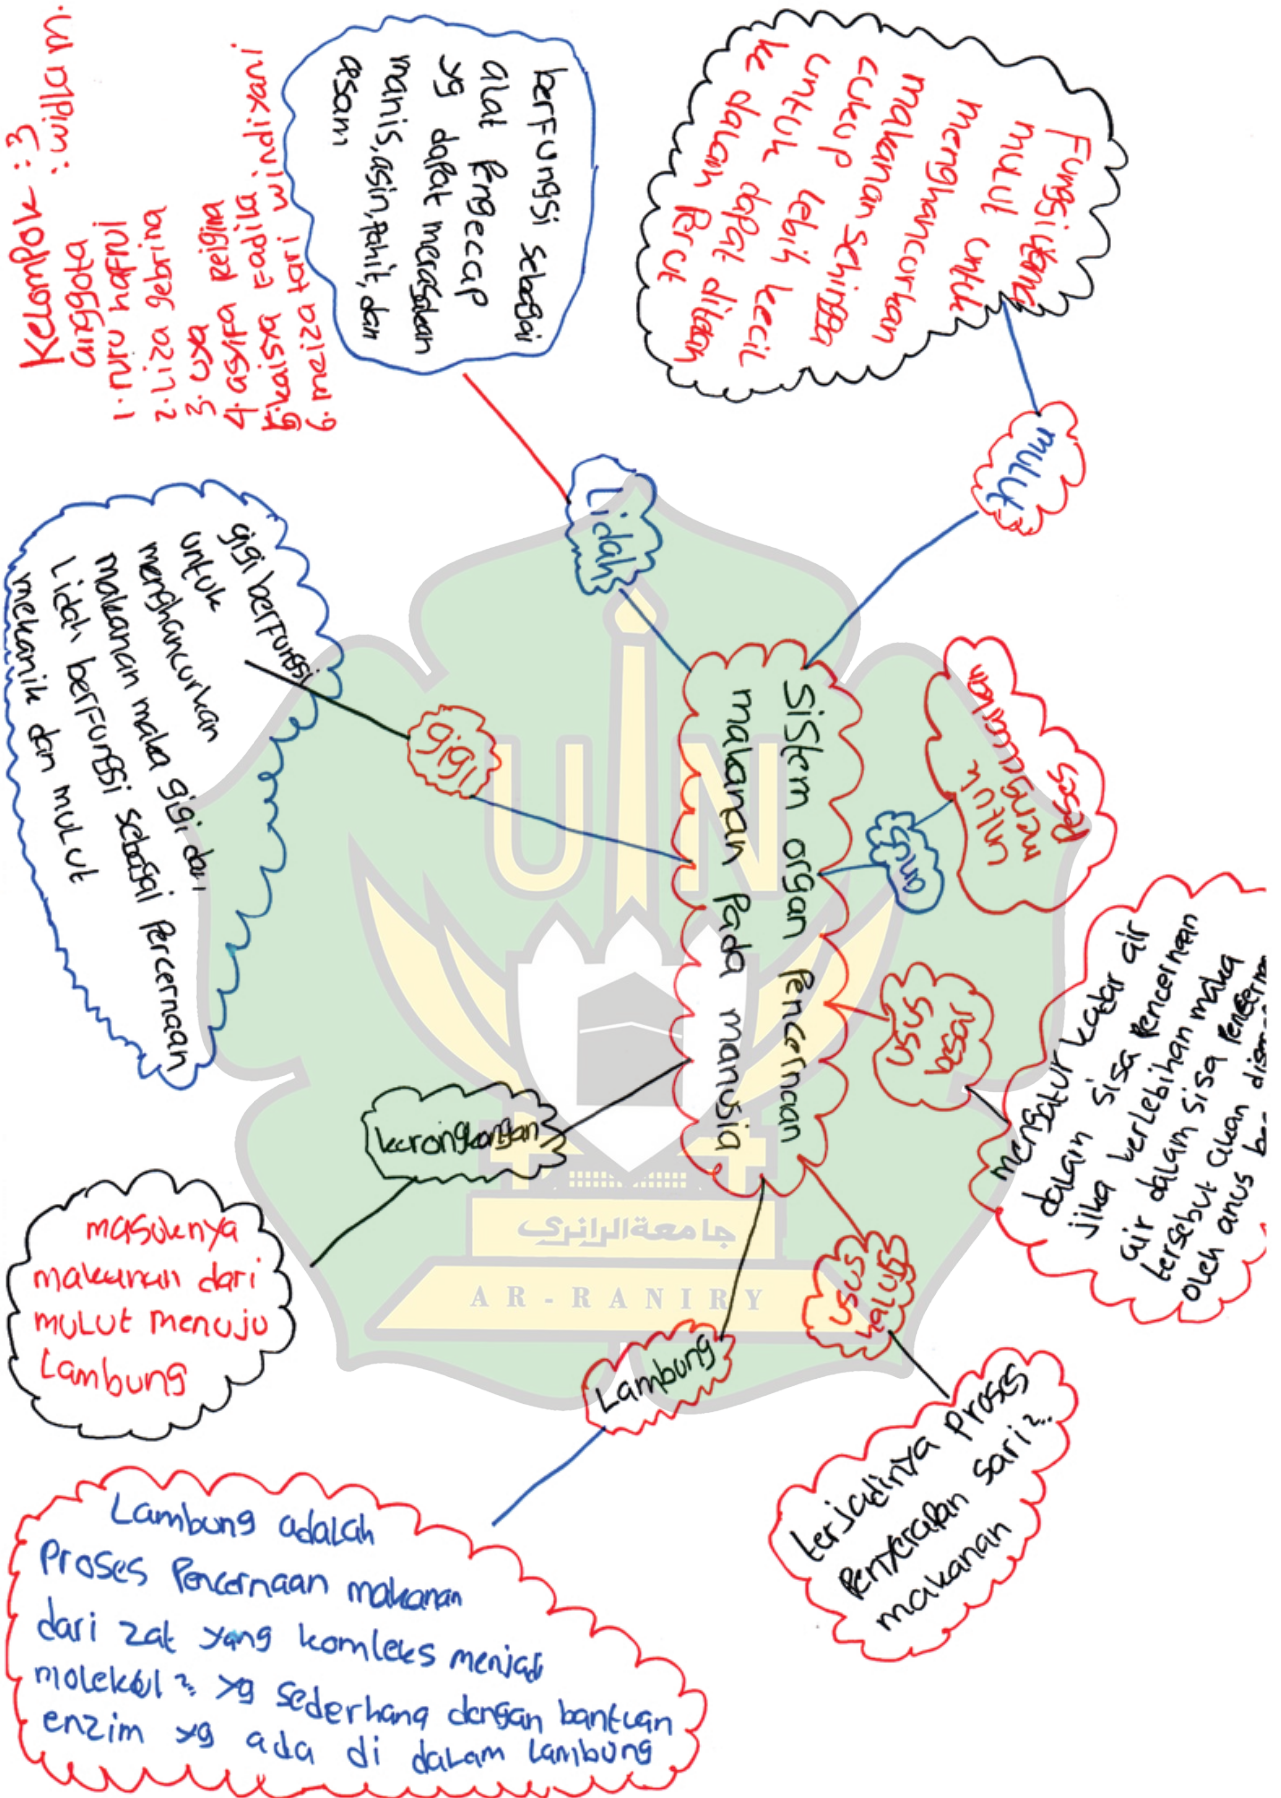 Kelompok : 3
: widlam.
anggota
1. nuru
2. Liza gebrina
3. uya
4. asyifa
5. kaisya Fadila
6. maiza tari windixani
berfungsi sebagai
alat Pengecap
yg dapat merasakan
manis, asin, Pahit, dan
asam
Fungsi utama
mulut untuk
menghancurkan
makanan sehingga
cukup lebih kecil
untuk dapat ditelan
ke dalam Perut
mulut
Lidah
gigi berfungsi
untuk
menghancurkan
makanan maka gigi dari
Lidah berfungsi sebagai Percernaan
mekanik dan mulut
gigi
Sistem organ Pencernaan
makanan Pada manusia
Proses
mengeluarkan
untuk
anus
usus
besar
mengatur kadar air
dalam sisa Pencernaan
jika berlebihan maka
air dalam sisa
tersebut akan
oleh anus
UIN
جامعة الرانري
AR-RANIRY
karongkongan
masuknya
makanan dari
mulut menuju
Lambung
usus
halus
terjadinya Proses
Penyerapan sari²
makanan
Lambung
Lambung adalah
Proses Pencernaan makanan
dari zat yang komleks menjadi
molekul² yg sederhana dengan bantuan
enzim yg ada di dalam lambung